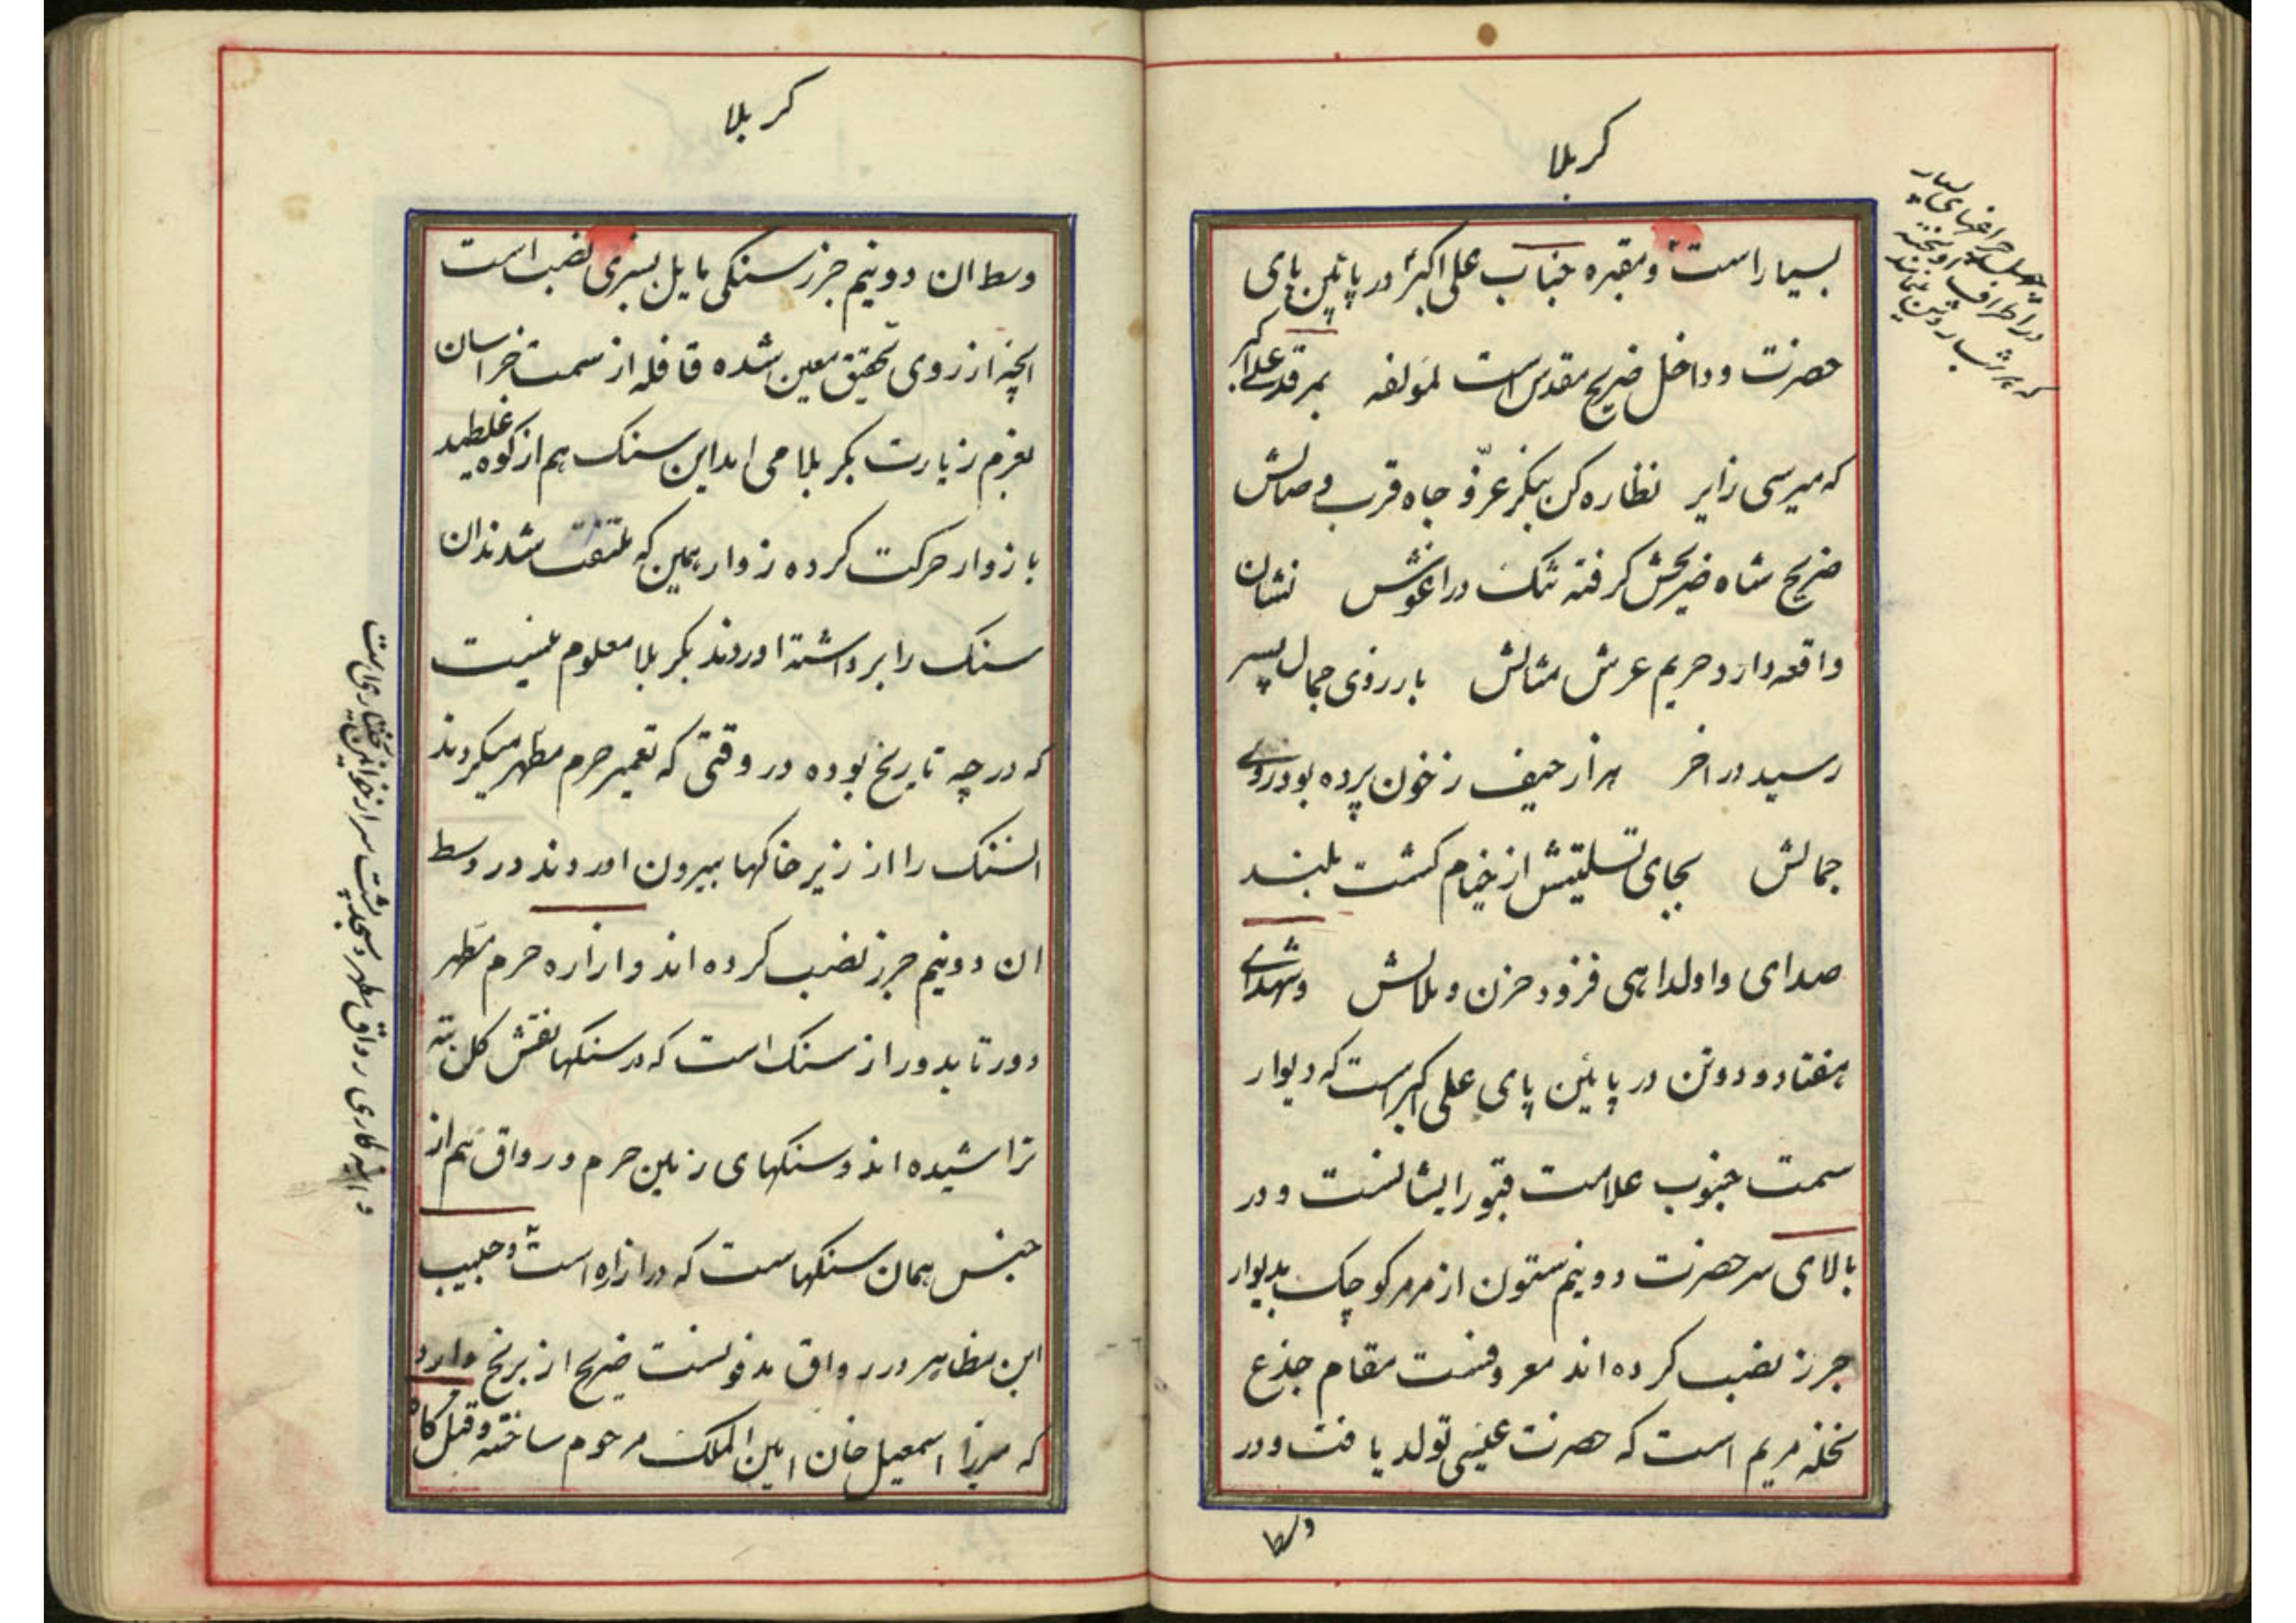 کربلا
بسیار است و مقبره جناب علی اکبر در پائین پای
حضرت و داخل ضریح مقدس است لمؤلفه بمرقد علی اکبر
که میرسی زایر نظاره کن بنگر عزّ و جاه قرب و صالش
ضریح شاه ضریحش گرفته تنک در اغوش نشان
واقعه دارد حریم عرش مثالش بارزوی جمال پسر
رسید در اخر هزار حیف ز خون پرده بود روی
جمالش بجای تسلیتش از خیام کشت بلند
صدای واولداهی فزود حزن و ملالش و شهدای
هفتاد و دو تن در پایئن پای علی اکبر است که دیوار
سمت جنوب علامت قبور ایشانست و در
بالای سر حضرت دو نیم ستون از مرمر کوچک بدیوار
جرز نصب کرده اند معروفست مقام جذع
نخله مریم است که حضرت عیسی تولد یافت و در
وسط
که هر شب روشن نمایند
کربلا
وسط ان دو نیم جرز سنکی مایل بسبزی نصب است
انچه از روی تحقیق معین شده قافله از سمت خراسان
بعزم زیارت بکربلا می امد این سنک هم از کوه غلطید
با زوار حرکت کرده زوار همین که ملتفت شدند ان
سنک را برداشته اوردند بکربلا معلوم نیست
که در چه تاریخ بوده در وقتی که تعمیر حرم مطهر میکردند
انسنک را از زیر خاکها بیرون اوردند در وسط
ان دو نیم جرز نصب کرده اند و ازاره حرم مطهر
دور تا بدور از سنک است که در سنکها نقش کلن بته
تراشیده اند و سنکهای زمین حرم و رواق هم از
جنس همان سنکهاست که در ازاره است و حبیب
ابن مظاهر در رواق مدفونست ضریح از برنج دارد
که میرزا اسمعیل خان امین الملک مرحوم ساخته و قتل کاه
و اینه کاری رواق مطهر و مسجد پشت سر از خوانین بختیاری است